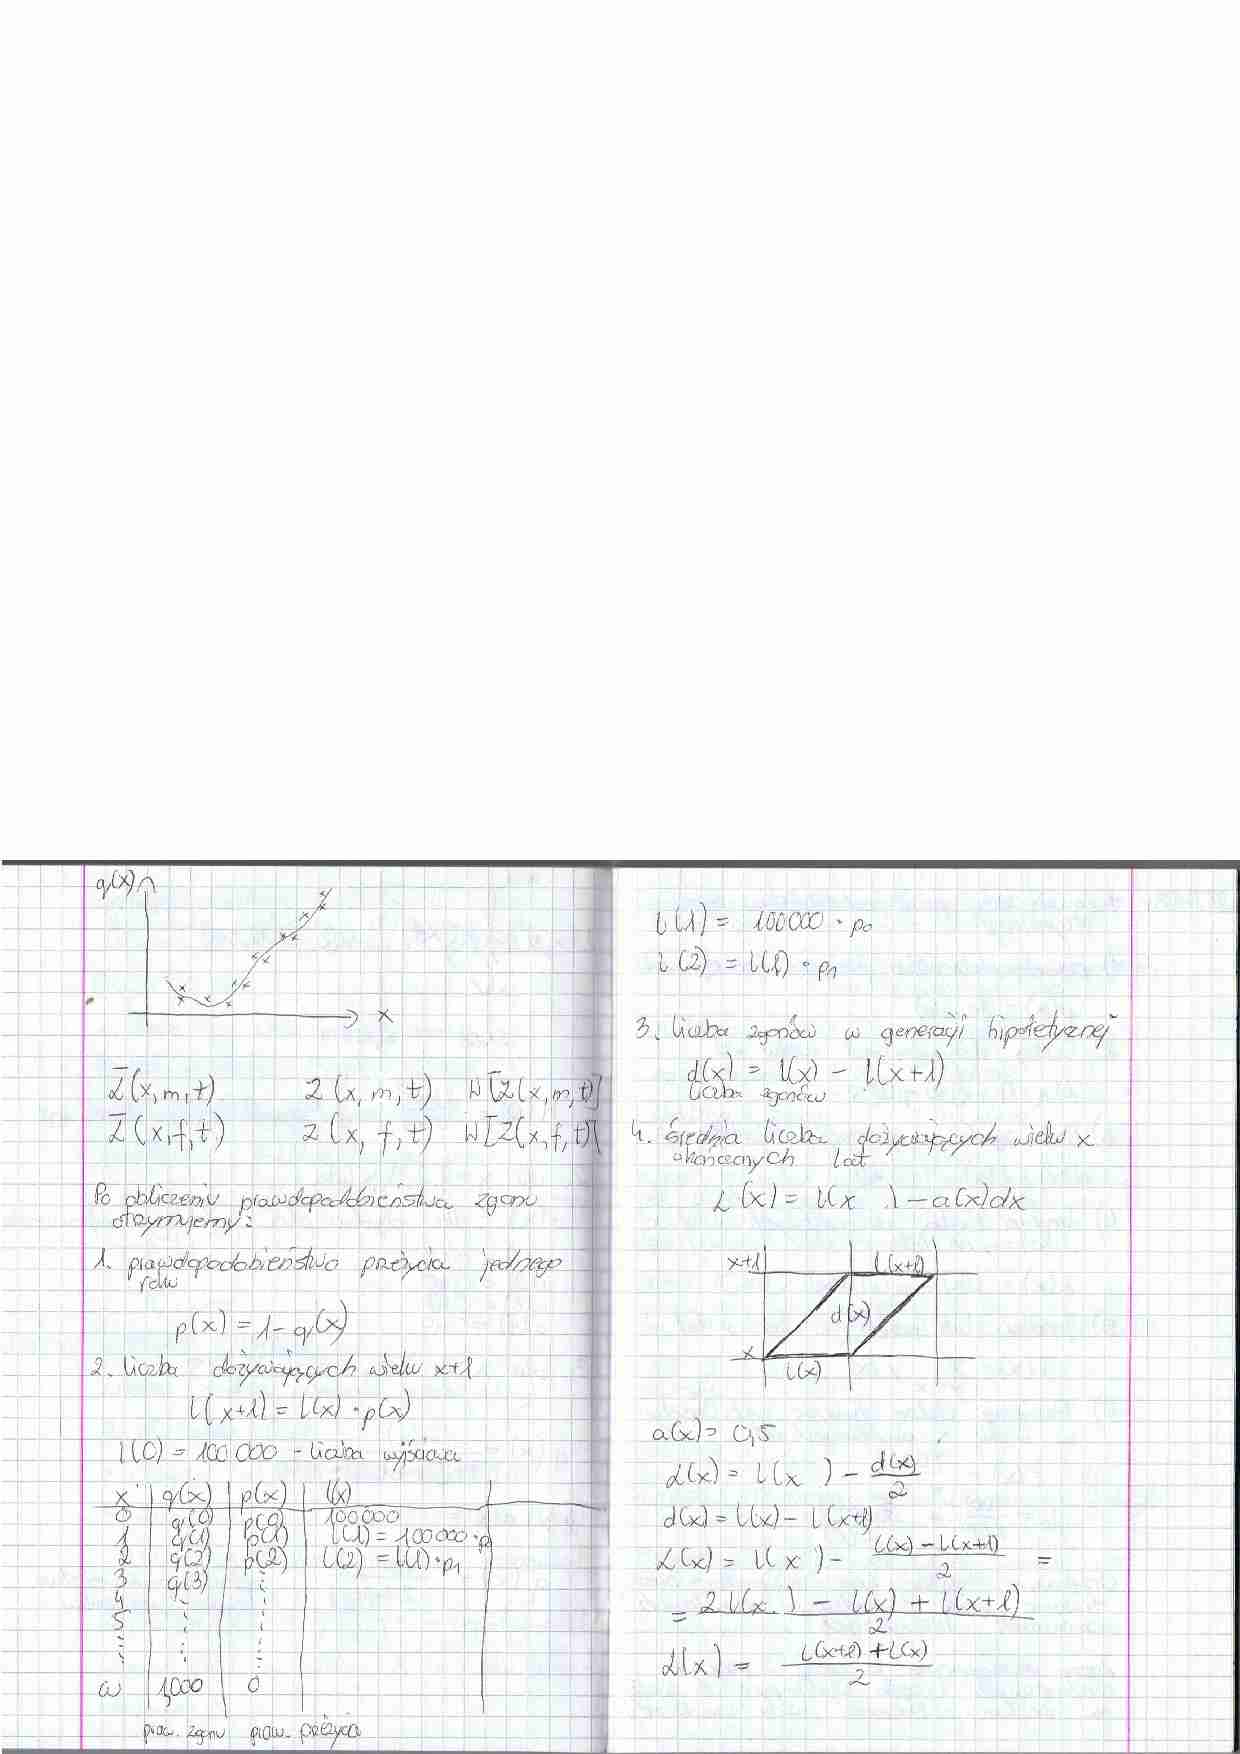 q(x)
x
Z̄(x,m,t) Z(x,m,t) W[Z(x,m,t)]
Z̄(x,f,t) Z(x,f,t) W[Z(x,f,t)]
Po obliczeniu prawdopodobieństwa zgonu
otrzymujemy:
1. prawdopodobieństwo przeżycia jednego
roku
p(x) = 1 - q(x)
2. liczba dożywających wieku x+1
l(x+1) = l(x) · p(x)
l(0) = 100 000 - liczba wyjściowa
x q(x) p(x) l(x)
0 q(0) p(0) 100000
1 q(1) p(1) l(1) = 100000 · p
2 q(2) p(2) l(2) = l(1) · p1
3 q(3)
4
5
ω 1,000 0
praw. zgonu praw. przeżycia
l(1) = 100000 · p0
l(2) = l(1) · p1
3. liczba zgonów w generacji hipotetycznej
d(x) = l(x) - l(x+1)
liczba zgonów
4. średnia liczba dożywających wieku x
ukończonych lat
L(x) = l(x ) - a(x)dx
x+1 l(x+1)
d(x)
x
l(x)
a(x) = 0,5
L(x) = l(x ) - d(x)/2
d(x) = l(x) - l(x+1)
L(x) = l(x ) - (l(x) - l(x+1))/2 =
= (2l(x ) - l(x) + l(x+1))/2
L(x) = (l(x+1) + l(x))/2